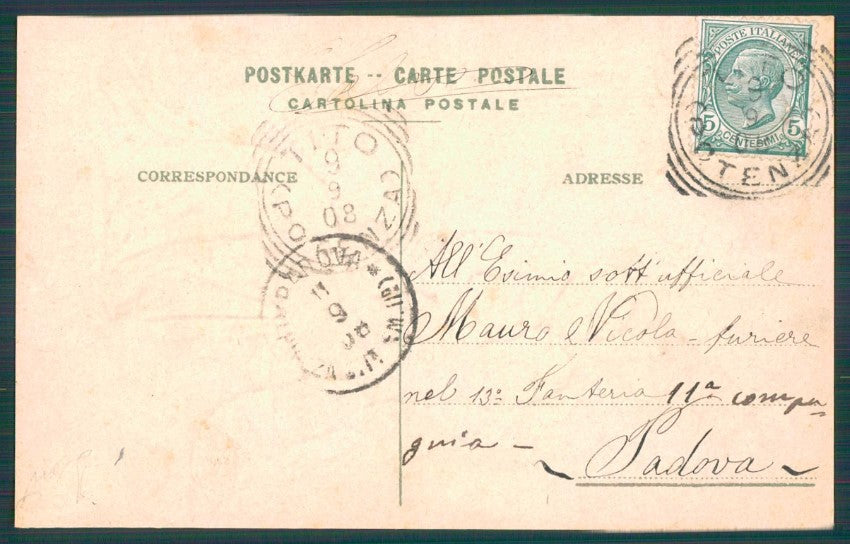 POSTE ITALIANE
5 CENTESIMI 5
POSTKARTE -- CARTE POSTALE
CARTOLINA POSTALE
TITO
9
9
08
(POTENZA)
CORRESPONDANCE
ADRESSE
All' Esimio sott'ufficiale
Mauro Nicola - furiere
nel 13º Fanteria 11ª compa
gnia -
~ Padova ~